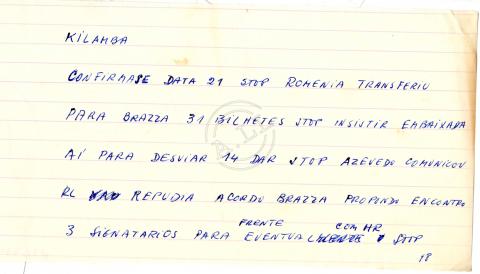 KILAMBA
CONFIRMASE DATA 21 STOP ROMENIA TRANSFERIU
PARA BRAZZA 31 BILHETES STOP INSISTIR EMBAIXADA
AÍ PARA DESVIAR 14 DAR STOP AZEVEDO COMUNICOU
RL REPUDIA ACORDO BRAZZA PROPONDO ENCONTRO
FRENTE COM HR
3 SIGNATARIOS PARA EVENTUAL STOP
18